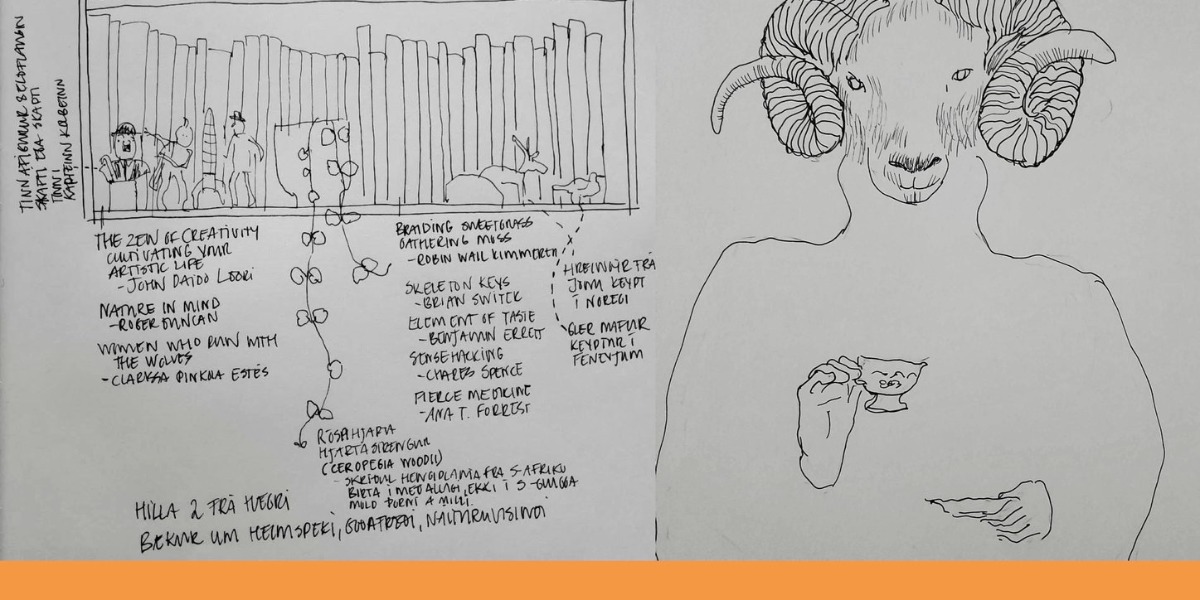 TINNAFÍGÚRUR & ELDFLAUGIN
SKAPTI EÐA SKAPTI
TINNI
KAPTEINN KOLBEINN
THE ZEN OF CREATIVITY
CULTIVATING YOUR
ARTISTIC LIFE
- JOHN DAIDO LOORI
NATURE IN MIND
- ROGER DUNCAN
WOMEN WHO RUN WITH
THE WOLVES
- CLARISSA PINKOLA ESTÉS
BRAIDING SWEETGRASS
GATHERING MOSS
- ROBIN WALL KIMMERER
SKELETON KEYS
- BRIAN SWITEK
ELEMENT OF TASTE
- BENJAMIN ERRETT
SENSEHACKING
- CHARES SPENCE
FIERCE MEDICINE
- ANA T. FORREST
HREINDÝR FRÁ
JÓNU KEYPT
Í NOREGI
GLER
KEYPTUR Í
FENEYJUM
RÓSAHJARTA
HJARTASTRENGUR
(CEROPEGIA WOODII)
- SKRIÐUL HENGIPLANTA FRÁ S-AFRÍKU
BIRTA Í MEÐALLAGI, EKKI Í S-GLUGGA
MOLD ÞORNI Á MILLI.
HILLA 2 FRÁ HÆGRI
BÆKUR UM HEIMSPEKI, GOÐAFRÆÐI, NÁTTÚRUVÍSINDI